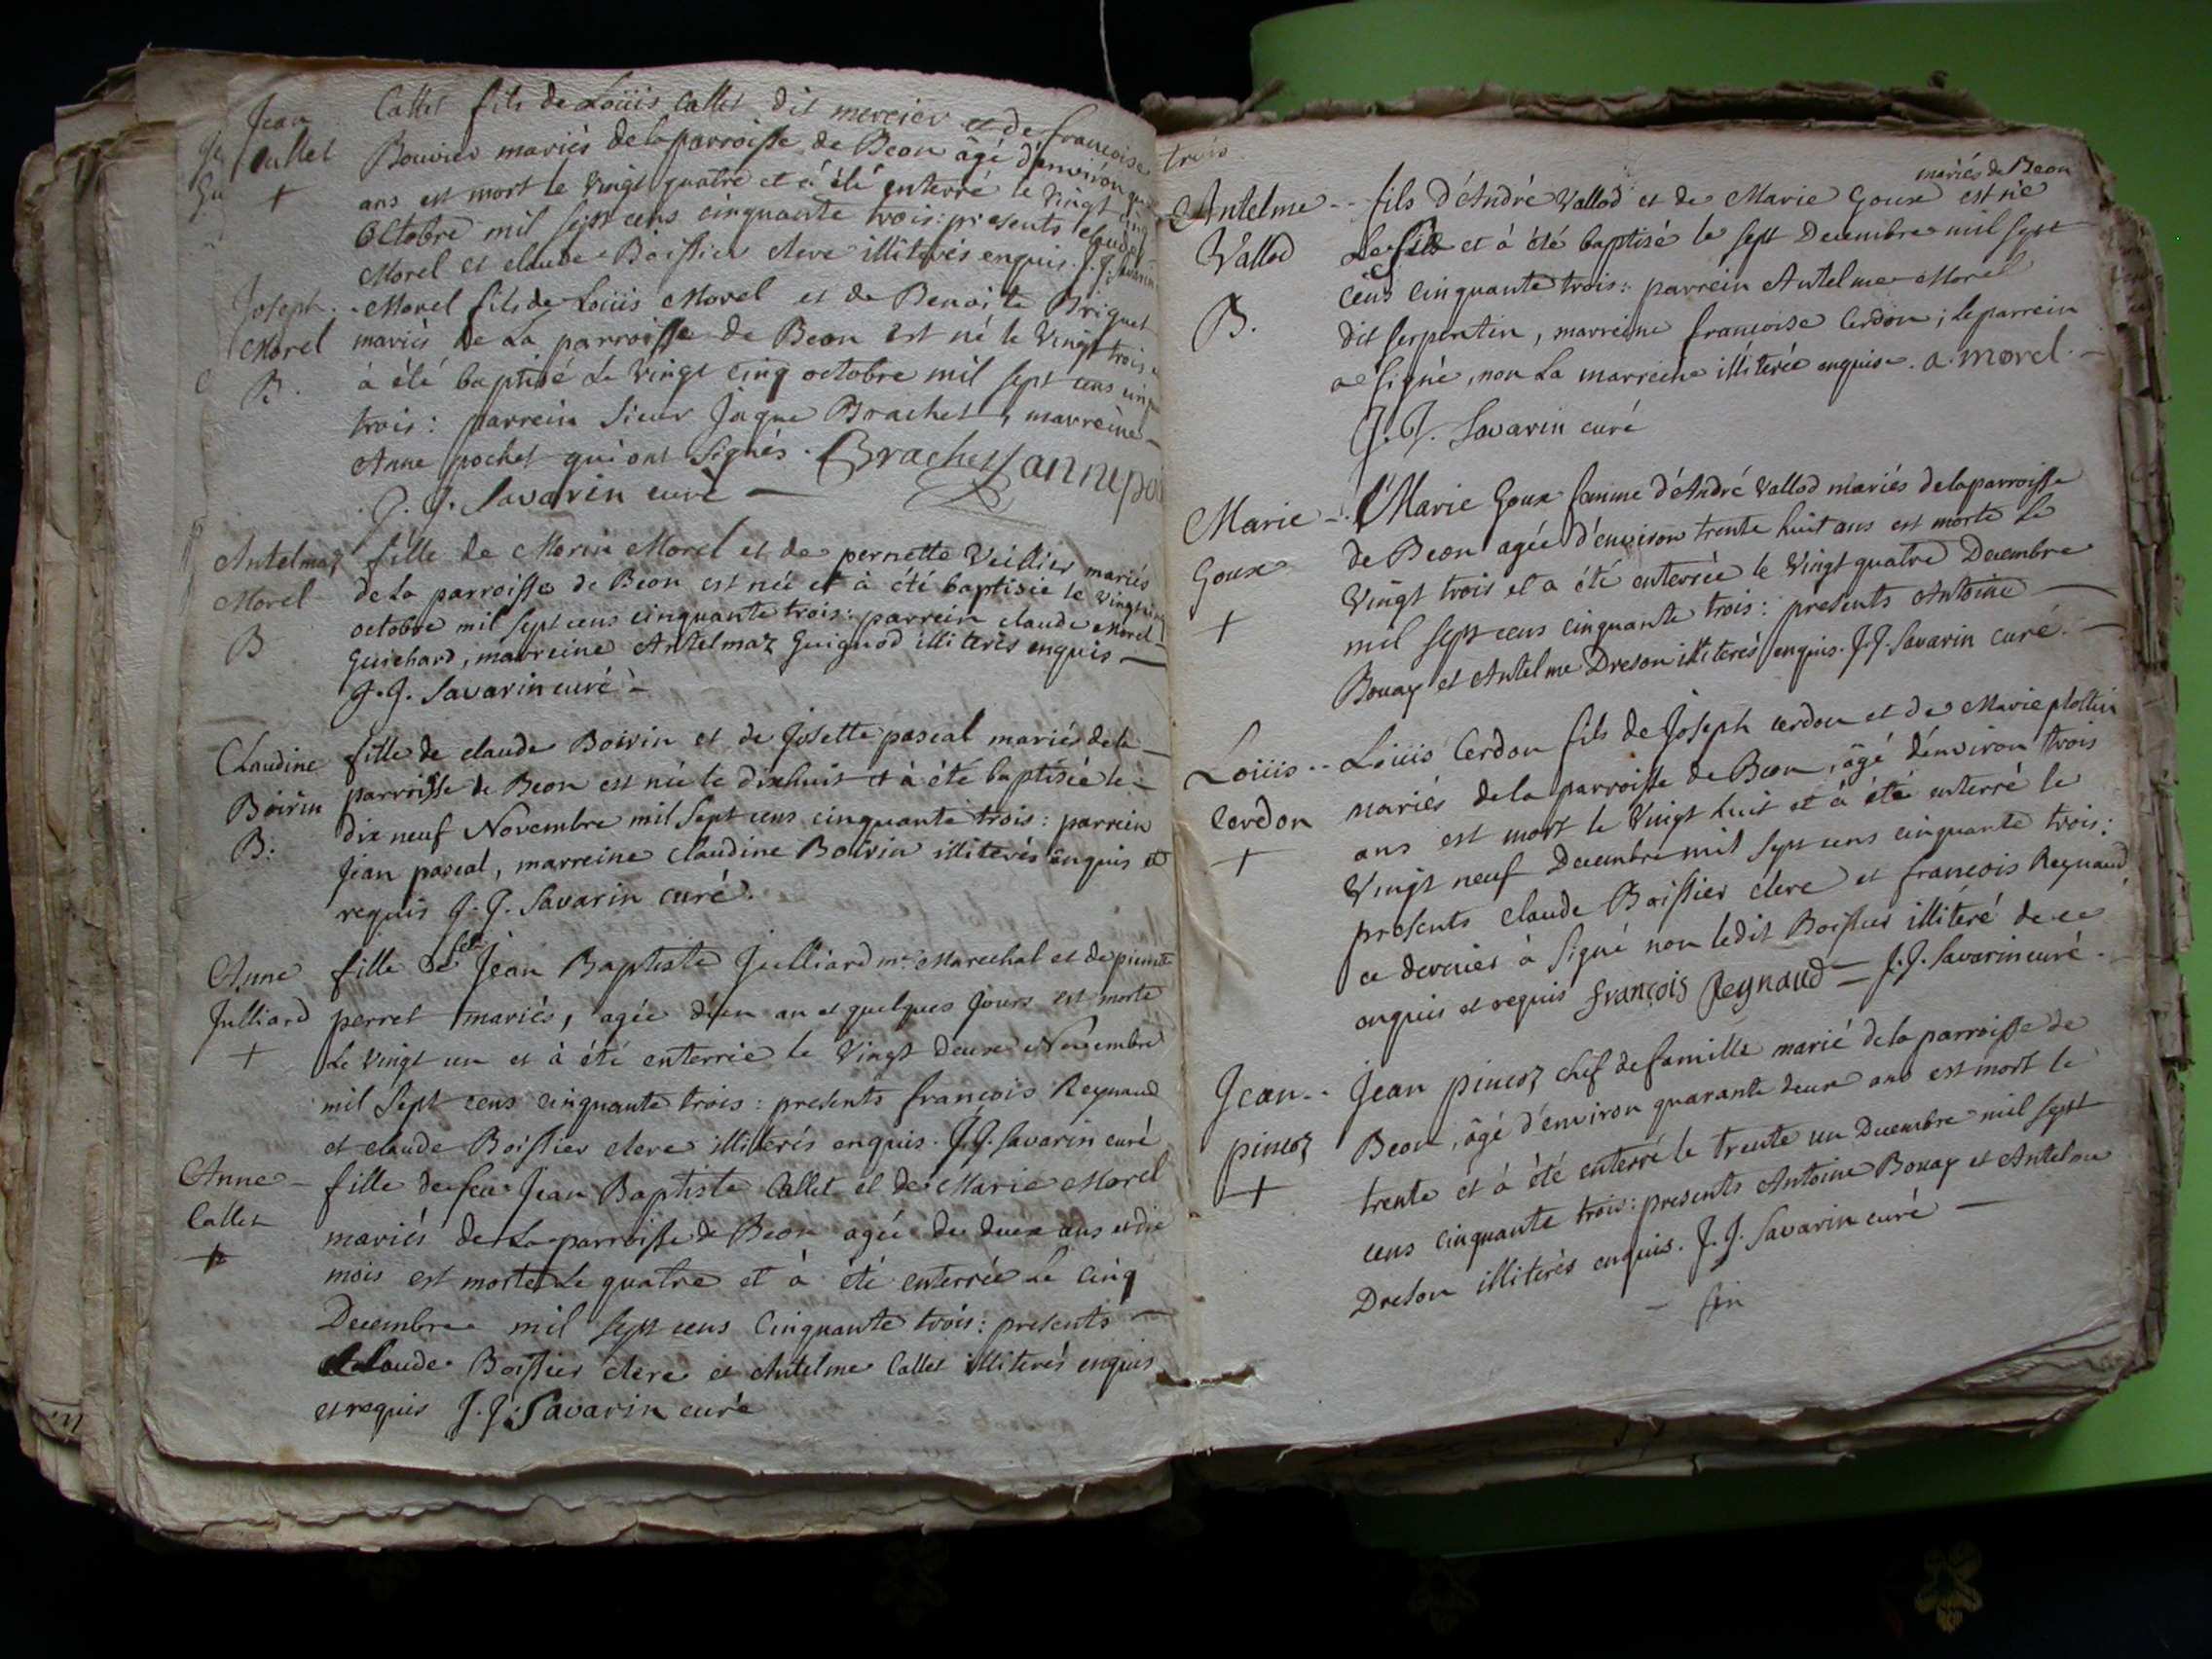 Jean Callet fils de Loüis Callet dit mercier et de francoise
Callet Bouvier mariés de la parroisse de Beon âgé d'environ
+ ans est mort le vingt quatre et à été enterré le vingt cinq
Octobre mil sept cens cinquante trois: presents claude
Morel et claude Boissier clerc illiterés enquis. J. J. Savarin
Joseph Morel fils de Loüis Morel et de Benoite Briguet
Morel mariés de La parroisse de Beon est né le vingt trois
B. à été baptisé Le vingt cinq octobre mil sept cens
trois: parrein Sieur Jaque Brachet, marreine
Anne pochet qui ont signés. Brachet anne po
J. J. Savarin curé
Antelmaz fille de Morin Morel et de pernette Veillier mariés
Morel de La parroisse de Beon est née et à été baptisée le vingt
B octobre mil sept cens cinquante trois: parrein claude Morel
Guichard, marreine Antelmaz Guignod illiterés enquis
J. J. Savarin curé
Claudine fille de claude Boirin et de Josette pascal mariés de la
Boirin parroisse de Beon est née le dixhuit et à été baptisée le
B: dix neuf Novembre mil Sept cens cinquante trois: parrein
Jean pascal, marreine Claudine Boirin illiterés enquis et
requis J. J. Savarin curé.
Anne fille de feu Jean Baptiste Julliard me. Marechal et de pierrette
Julliard perret mariés, agée d'un an et quelques jours est morte
+ Le vingt un et à été enterrée le vingt deux Novembre
mil Sept cens cinquante trois: presents francois Reynaud
et claude Boissier clerc illiterés enquis. J. J. Savarin curé
Anne fille de feu Jean Baptiste Callet et de Marie Morel
Callet mariés de La parroisse de Beon agée de deux ans et dix
+ mois est morte Le quatre et à été enterrée Le cinq
Decembre mil sept cens Cinquante trois: presents
claude Boissier clerc et Antelme Callet illiterés enquis
et requis J. J. Savarin curé
trois
mariés de Beon
Antelme fils d'André Vallod et de Marie Goux est né
Vallod Le six et à été baptisé le sept Decembre mil sept
B. cens cinquante trois: parrein Antelme Morel
dit serpentin, marreine francoise Cerdon; le parrein
a signé, non La marreine illiterée enquise. a. morel.
J. J. Savarin curé
Marie Marie Goux femme d'André Vallod mariés de la parroisse
Goux de Beon agée d'environ trente huit ans est morte Le
+ vingt trois et a été enterrée le vingt quatre Decembre
mil sept cens cinquante trois: presents Antoine
Bouay et Antelme Dreson illiterés enquis. J. J. Savarin curé.
Loüis Loüis Cerdon fils de Joseph cerdon et de Marie plottin
Cerdon mariés de la parroisse de Beon, âgé d'environ trois
+ ans est mort le vingt huit et à été enterré le
vingt neuf Decembre mil sept cens cinquante trois:
presents claude Boissier clerc et francois Reynaud
ce dernier à signé non ledit Boissier illiteré de ce
enquis et requis françois Reynaud J. J. Savarin curé.
Jean Jean pincoz chef de famille marié de la parroisse de
pincoz Beon, âgé d'environ quarante deux ans est mort le
+ trente et à été enterré le trente un Decembre mil sept
cens cinquante trois: presents Antoine Bouay et Antelme
Dreson illiterés enquis. J. J. Savarin curé
fin